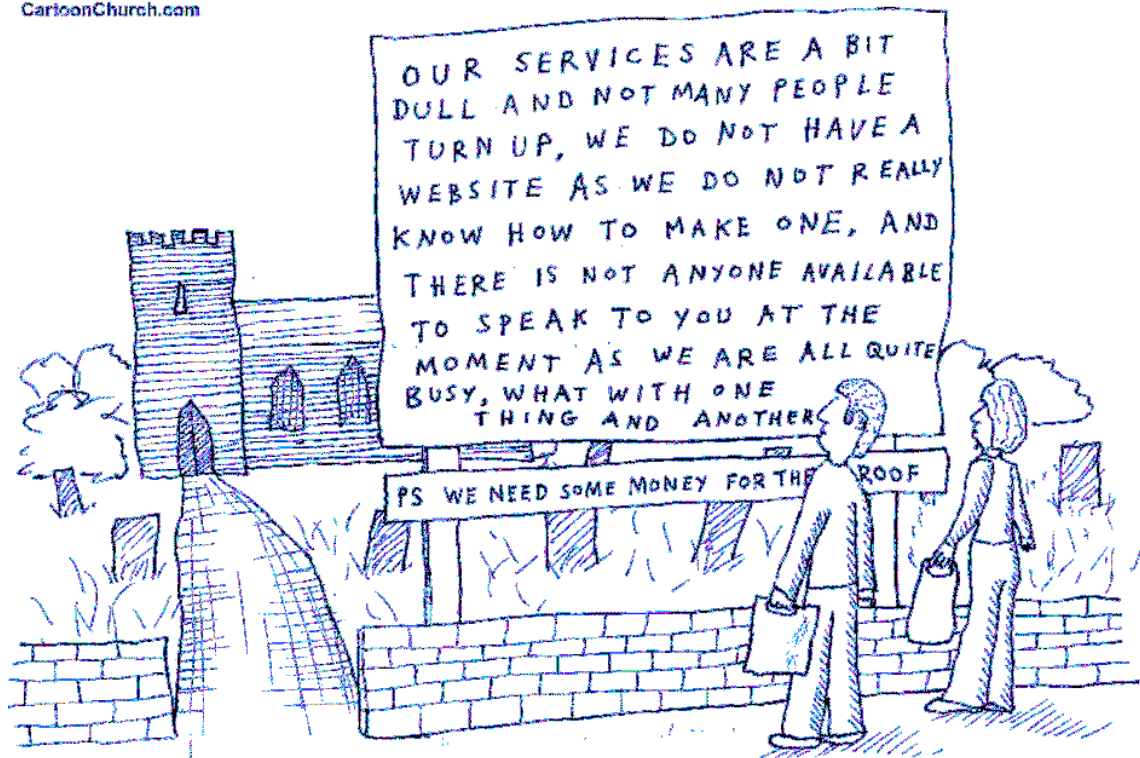 CartoonChurch.com
OUR SERVICES ARE A BIT
DULL AND NOT MANY PEOPLE
TURN UP, WE DO NOT HAVE A
WEBSITE AS WE DO NOT REALLY
KNOW HOW TO MAKE ONE, AND
THERE IS NOT ANYONE AVAILABLE
TO SPEAK TO YOU AT THE
MOMENT AS WE ARE ALL QUITE
BUSY, WHAT WITH ONE
THING AND ANOTHER
PS WE NEED SOME MONEY FOR THE ROOF